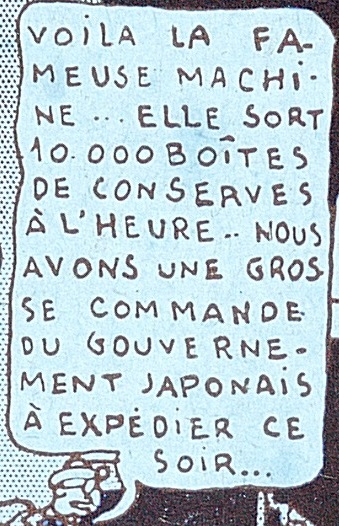 VOILA LA FA-
MEUSE MACHI-
NE... ELLE SORT
10.000 BOÎTES
DE CONSERVES
À L'HEURE.. NOUS
AVONS UNE GROS-
SE COMMANDE
DU GOUVERNE-
MENT JAPONAIS
À EXPÉDIER CE
SOIR...